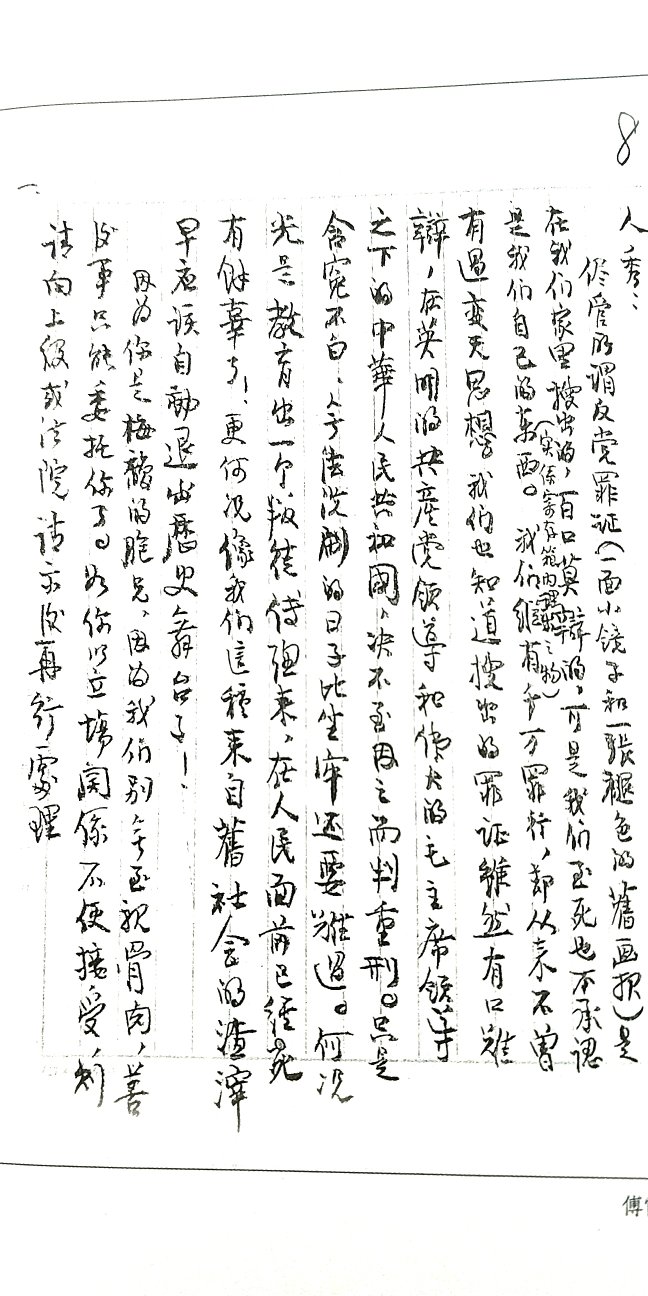 8
人秀:
尽管所谓反党罪证(一面小镜子和一張褪色的舊画报)是
在我们家里搜出的,百口莫辩的,可是我们至死也不承認
(实係寄存箱内理出之物)
是我们自己的东西。我们縱有千万罪行,却从来不曾
有過变天思想。我们也知道搜出的罪证雖然有口难
辯,在英明的共產党領導和偉大的毛主席領導
之下的中華人民共和國,决不至因之而判重刑。只是
含宽不白、無法洗刷的日子比坐牢还要難過。何况
光是教育出一个叛徒傅聰来,在人民面前已经死
有餘辜了!更何况像我们這種来自舊社会的渣滓
早应该自動退出歷史舞台了!
因为你是梅馥的胞兄,因为我们别無至親骨肉,善
後事只能委托你了。如你以立場関係不便接受,則
请向上级或法院请示後再行處理
一、
傅